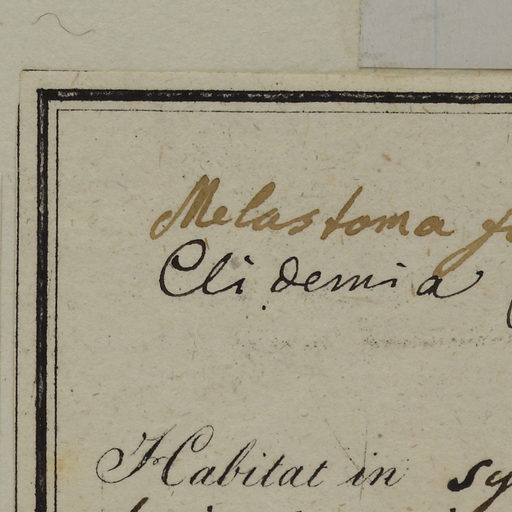 Melastoma
Clidemia
Habitat in sy